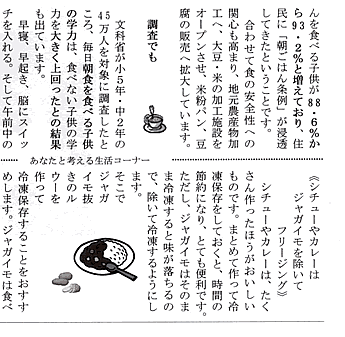 んを食べる子供が88・6%か
ら93・2%と増えており、住
民に「朝ごはん条例」が浸透
してきたということです。
合わせて食の安全性への
関心も高まり、地元農産物加
工へ、大豆・米の加工施設を
オープンさせ、米粉パン、豆
腐の販売へ拡大しています。
調査でも
文科省が小5年・中2年の
45万人を対象に調査したと
ころ、毎日朝食を食べる子供
の学力は、食べない子供の学
力を大きく上回ったとの結果
も出ています。
早寝、早起き、脳にスイッ
チを入れる。そして午前中の
あなたと考える生活コーナー
《シチューやカレーは
ジャガイモを除いて
フリージング》
シチューやカレーは、たく
さん作ったほうがおいしい
ものです。まとめて作って冷
凍保存をしておくと、時間の
節約になり、とても便利です。
ただし、ジャガイモはそのま
ま冷凍すると味が落ちるの
で、除いて冷凍するようにし
ます。
そこで
ジャガ
イモ抜
きのル
ウーを
作って
冷凍保存することをおすす
めします。ジャガイモは食べ